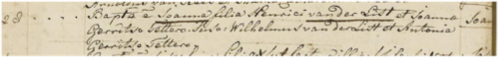 28 . . . . Bapta e Joanna filia Henrici van der List et Joanna Joan
Gerritse Tettero. Susc: Wilhelmus van der List et Antonia
Gerritse Tettero